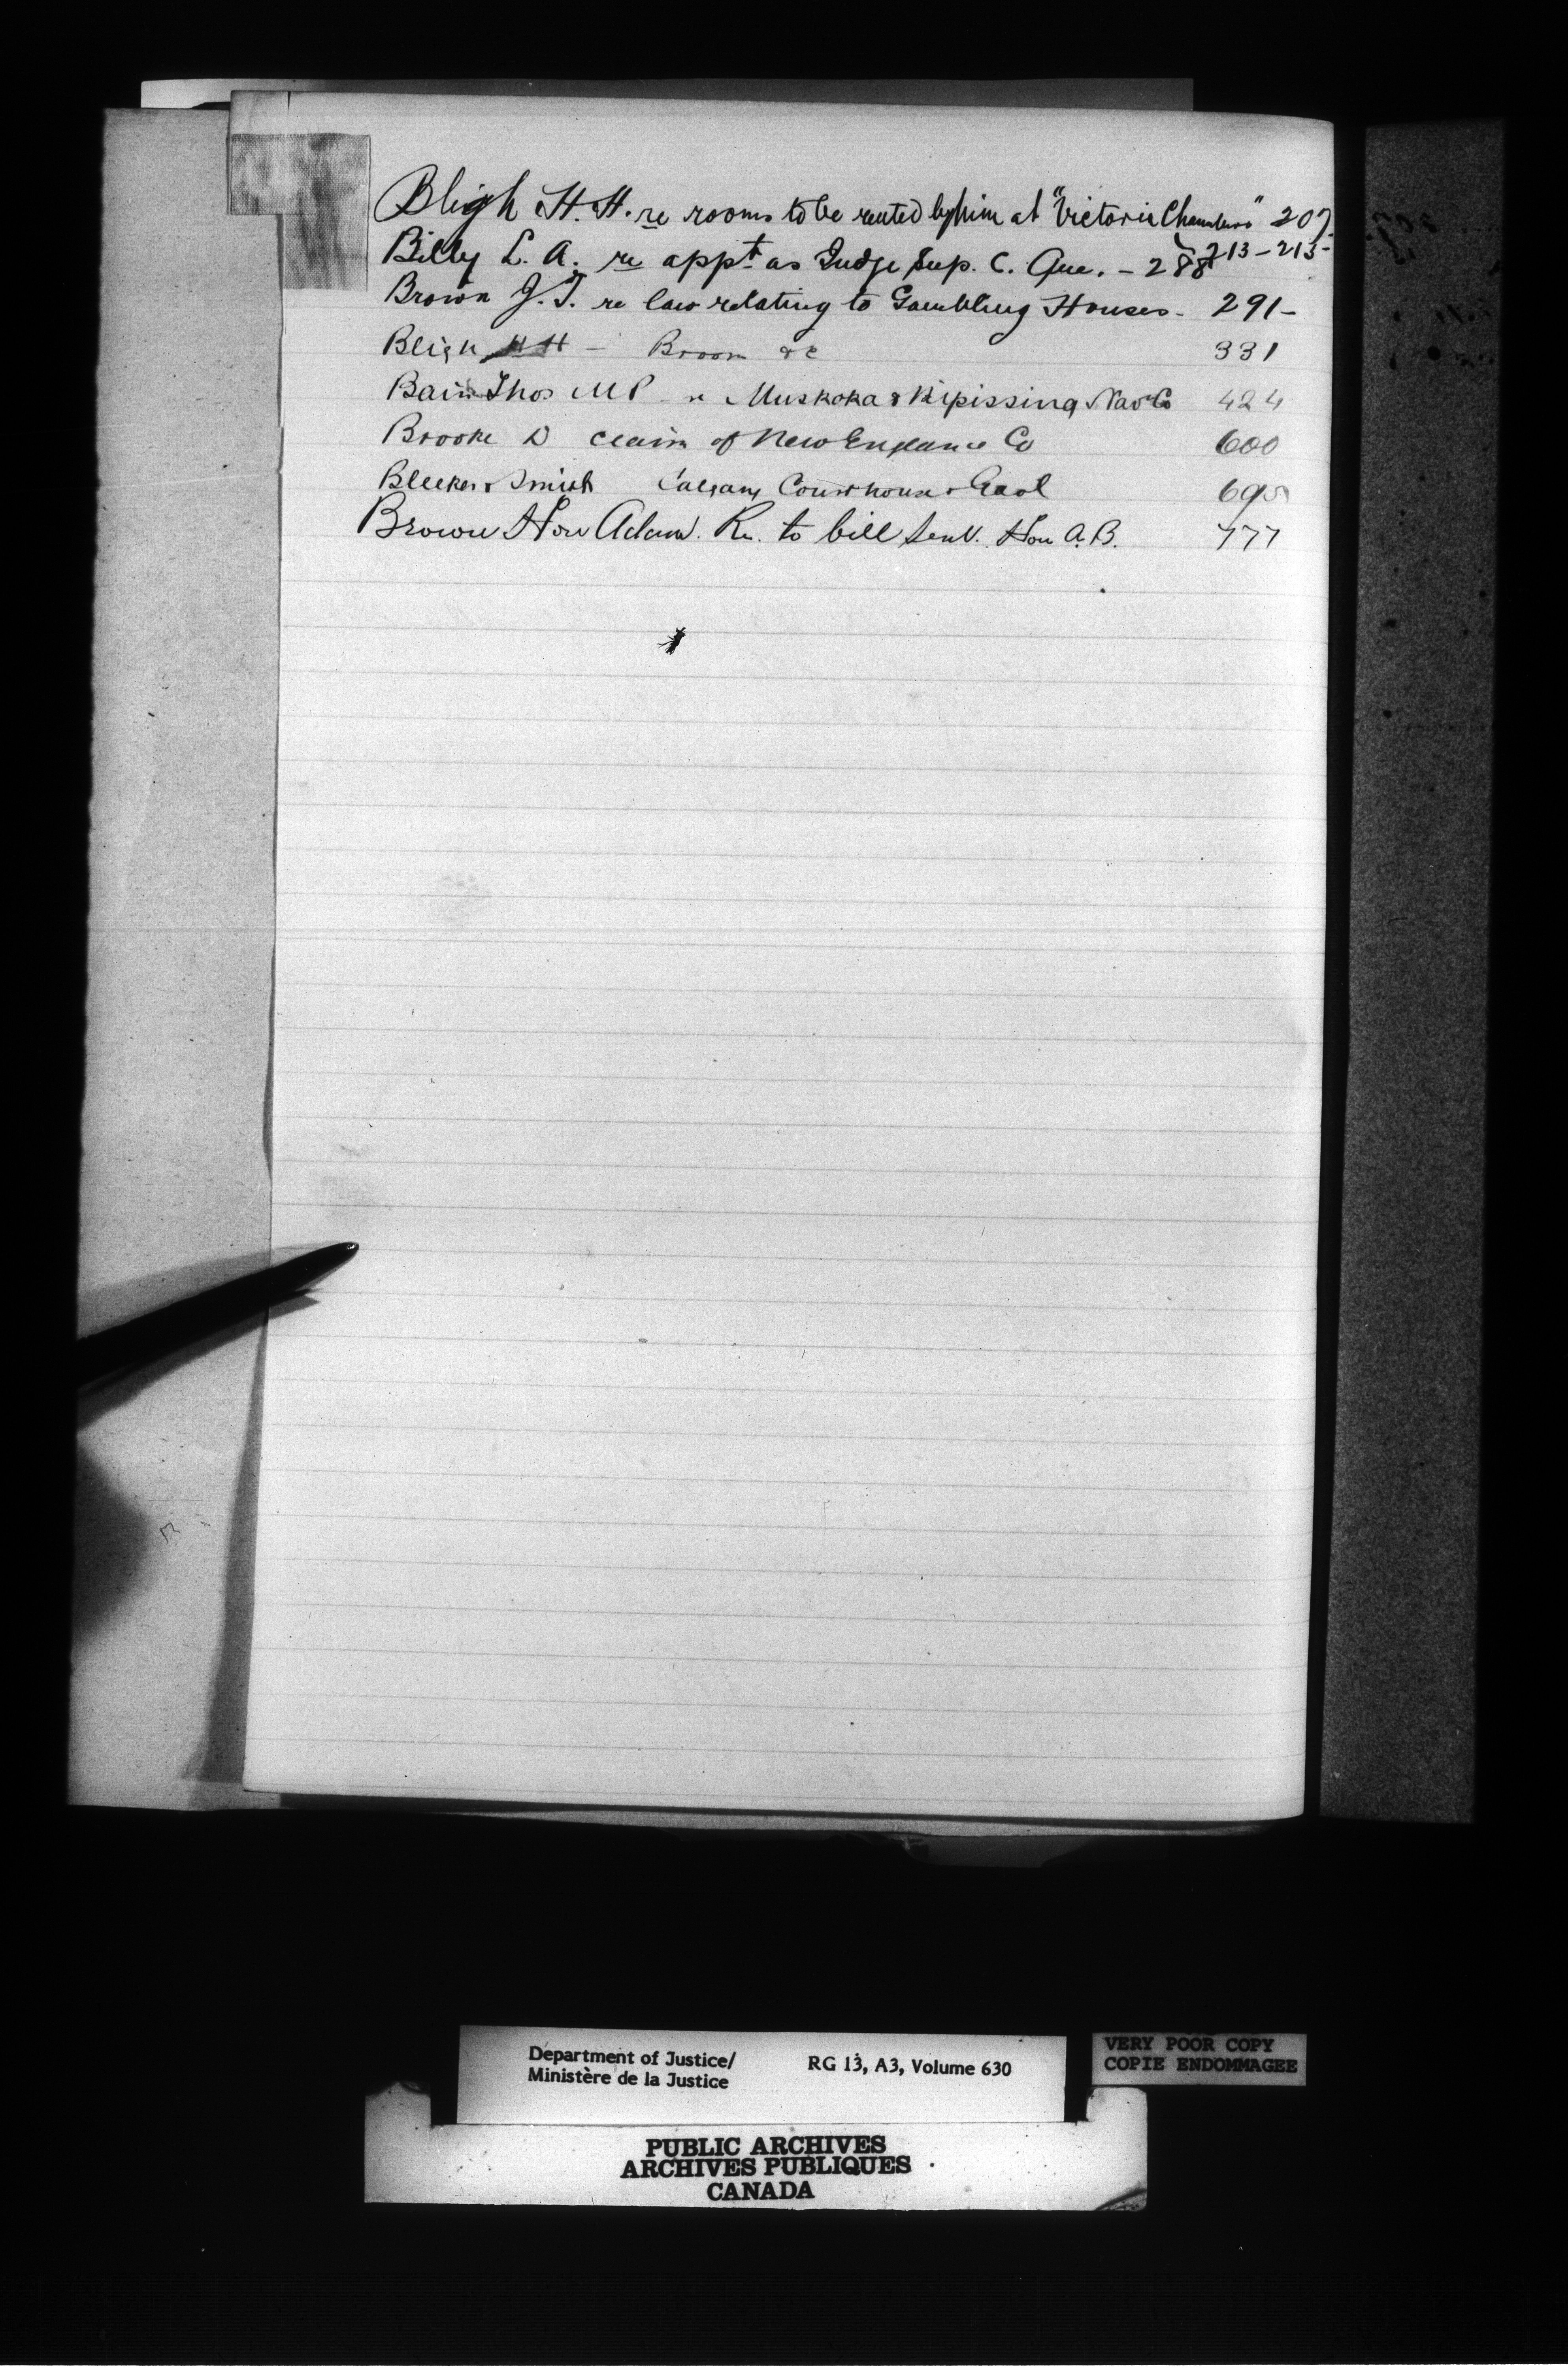 Bligh H. H. re rooms to be rented by him at "Victoria Chambers" 207.
213-215-
Billy L. A. re appt as Judge Sup. C. Que. - 288
Brown J. T. re law relating to Gambling Houses - 291-
Bligh HH - Broom &c 331
Bain Thos MP re Muskoka & Nipissing Nav Co 424
Brooke D claim of New England Co 600
Bleeker & Smith Calgary Courthouse & Gaol
Brown Hon Adam. Re. to bill Hon A. B. 777
Department of Justice/ RG 13, A3, Volume 630
Ministère de la Justice
VERY POOR COPY
COPIE ENDOMMAGEE
PUBLIC ARCHIVES
ARCHIVES PUBLIQUES
CANADA